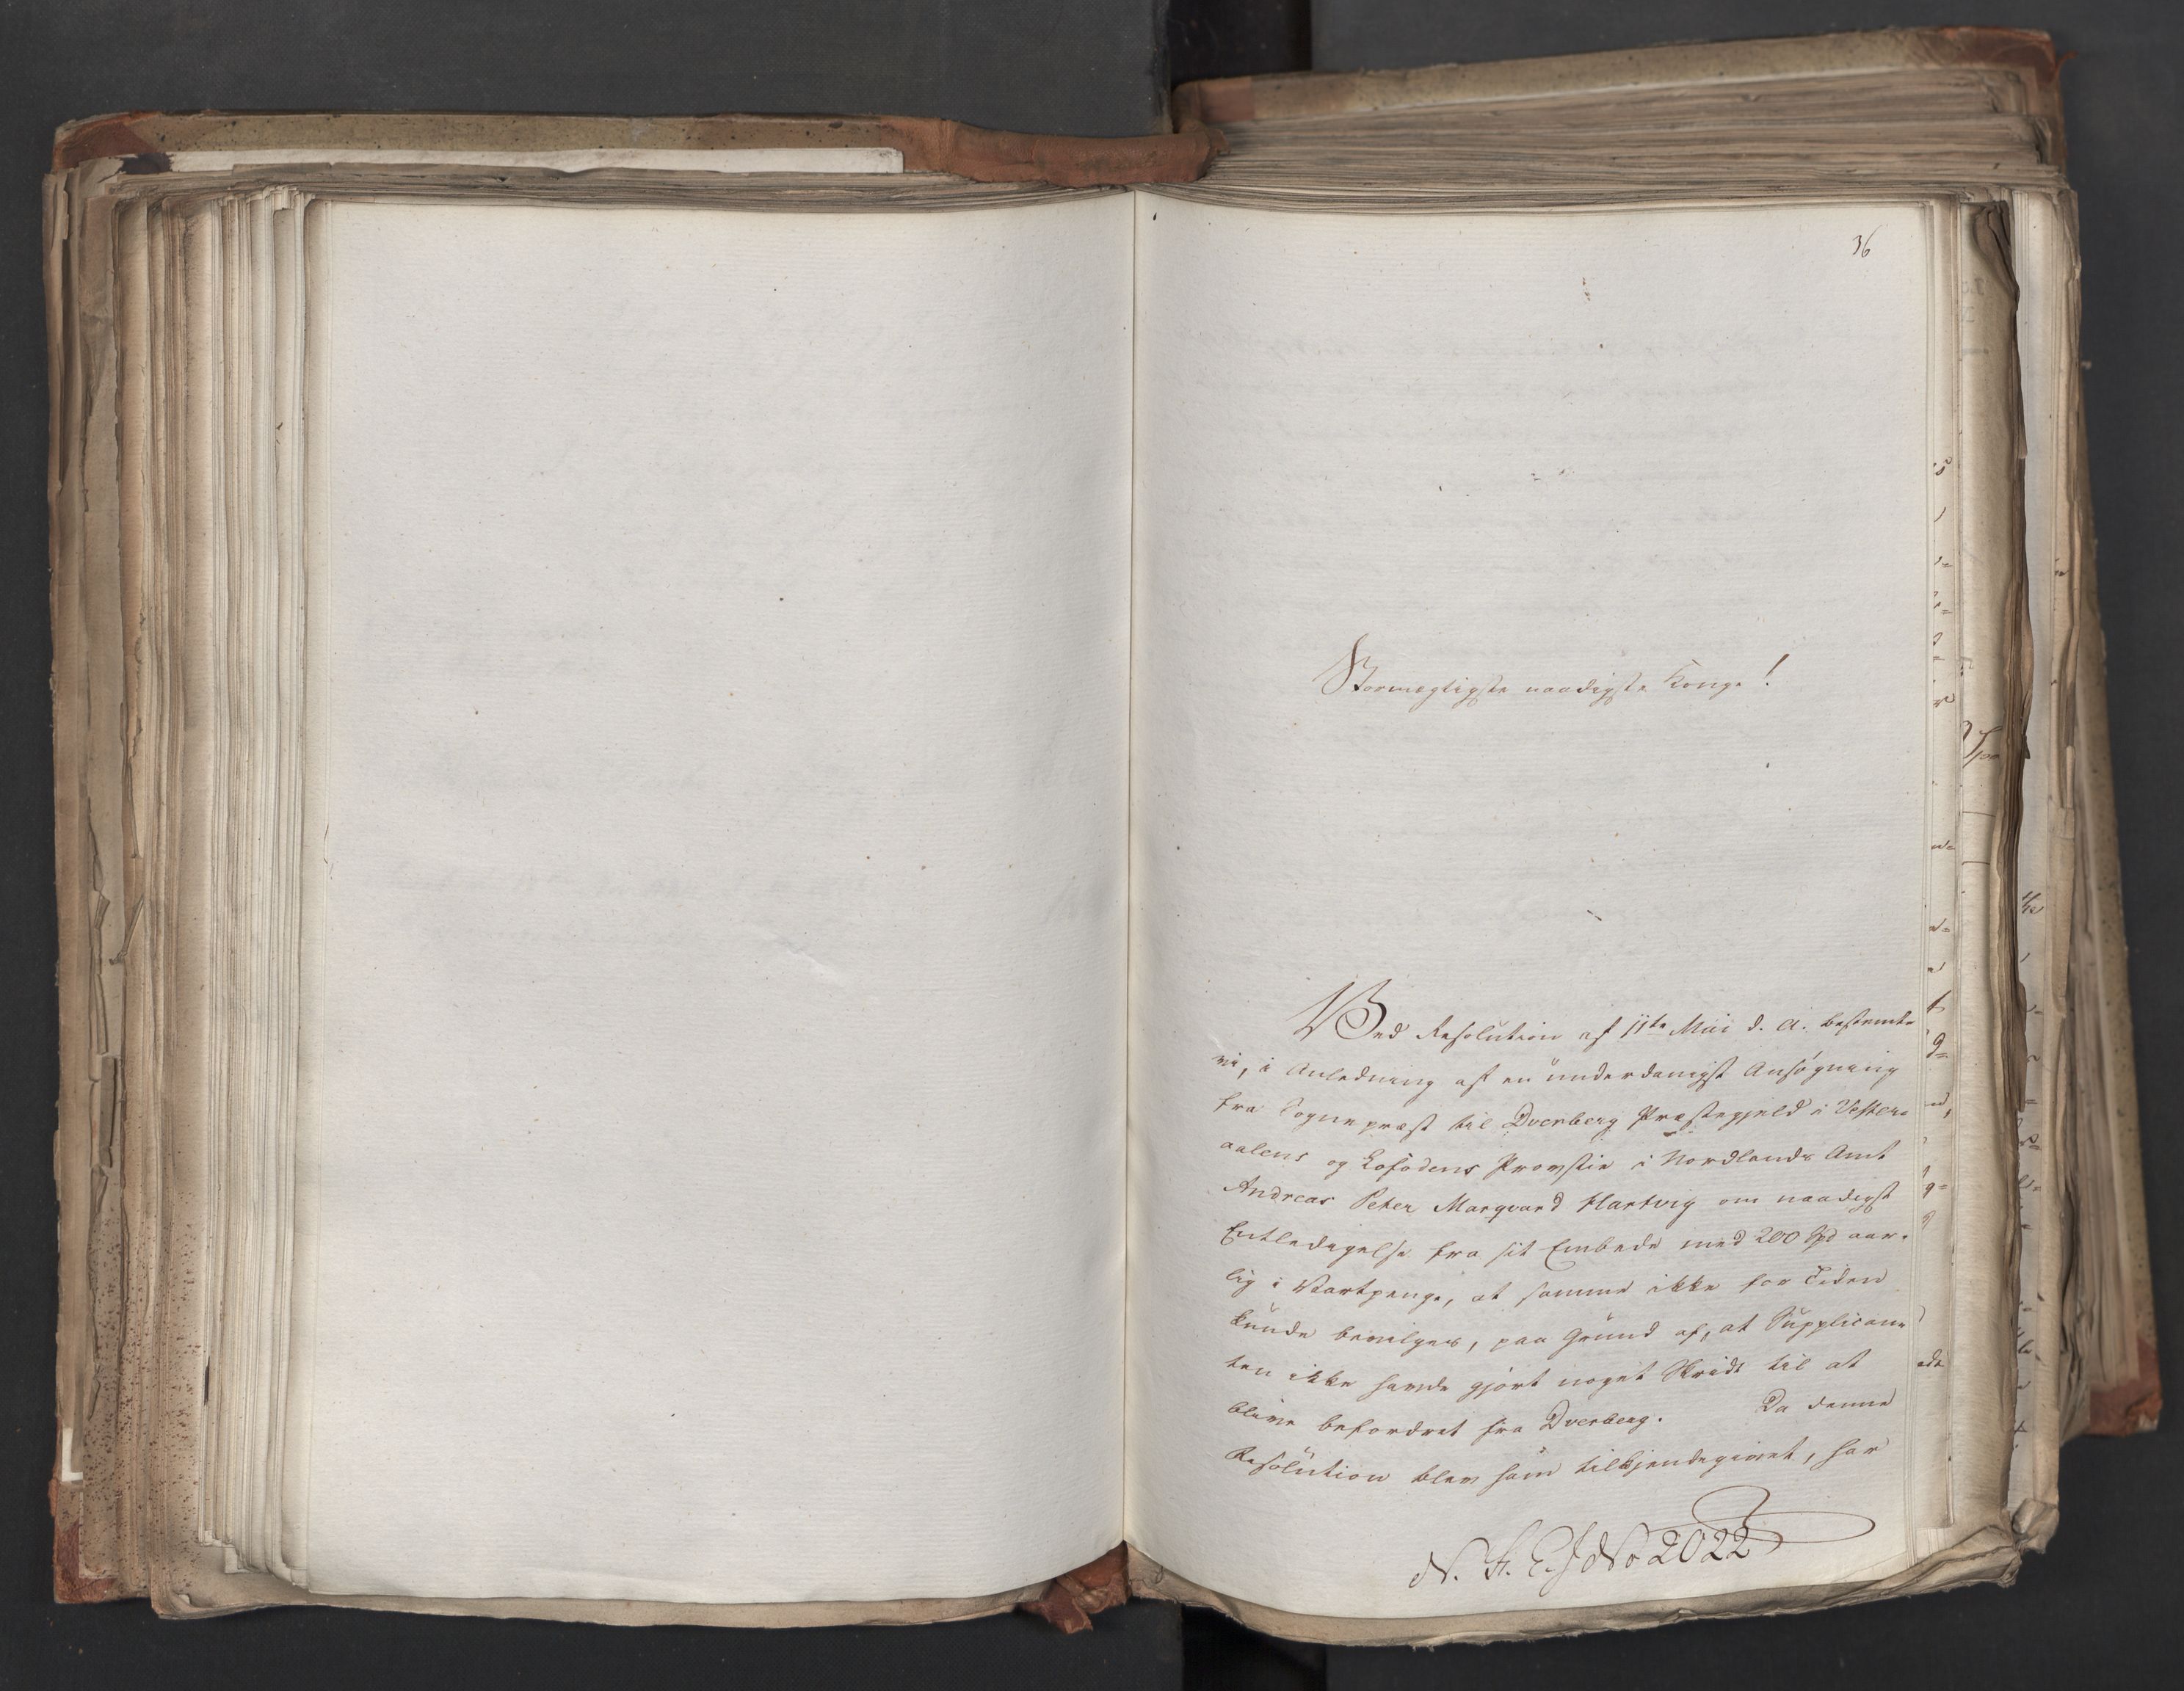 36
Stormægtigste naadigste Konge!
Ved Resolution af 11te Mai d. A. bestemte
vi, i Anledning af en underdanigst Ansøgning
fra Sognepræst til Dverberg Præstegjeld i Vester-
aalens og Lofodens Provstie i Nordlands Amt
Andreas Peter Marqvard Hartvig om naadigst
Entledigelse fra sit Embede med 200 Spd aar-
lig i Vartpenge, at samme ikke for Tiden
kunde bevilges, paa Grund af, at Supplican-
ten ikke havde gjort noget Skridt til at
blive befordret fra Dverberg. Da denne
Resolution blev ham tilkjendegivet, har
N. St. E. J No 2022